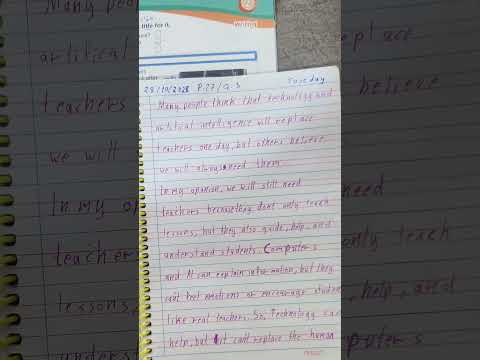 title for it.
Writing
28/10/2025 P.27/Q.3 Tuesday
Many people think that technology and
artifical intelligence will replace
teachers one day, but others believe
we will always need them.
In my opinion, we will still need
teachers because they dont only teach
lessons, but they also guide, help, and
understand students. Computers
and AI can explain information, but they
can't feel emotions or encourage students
like real teachers. So, Technology can
help, but it can't replace the human